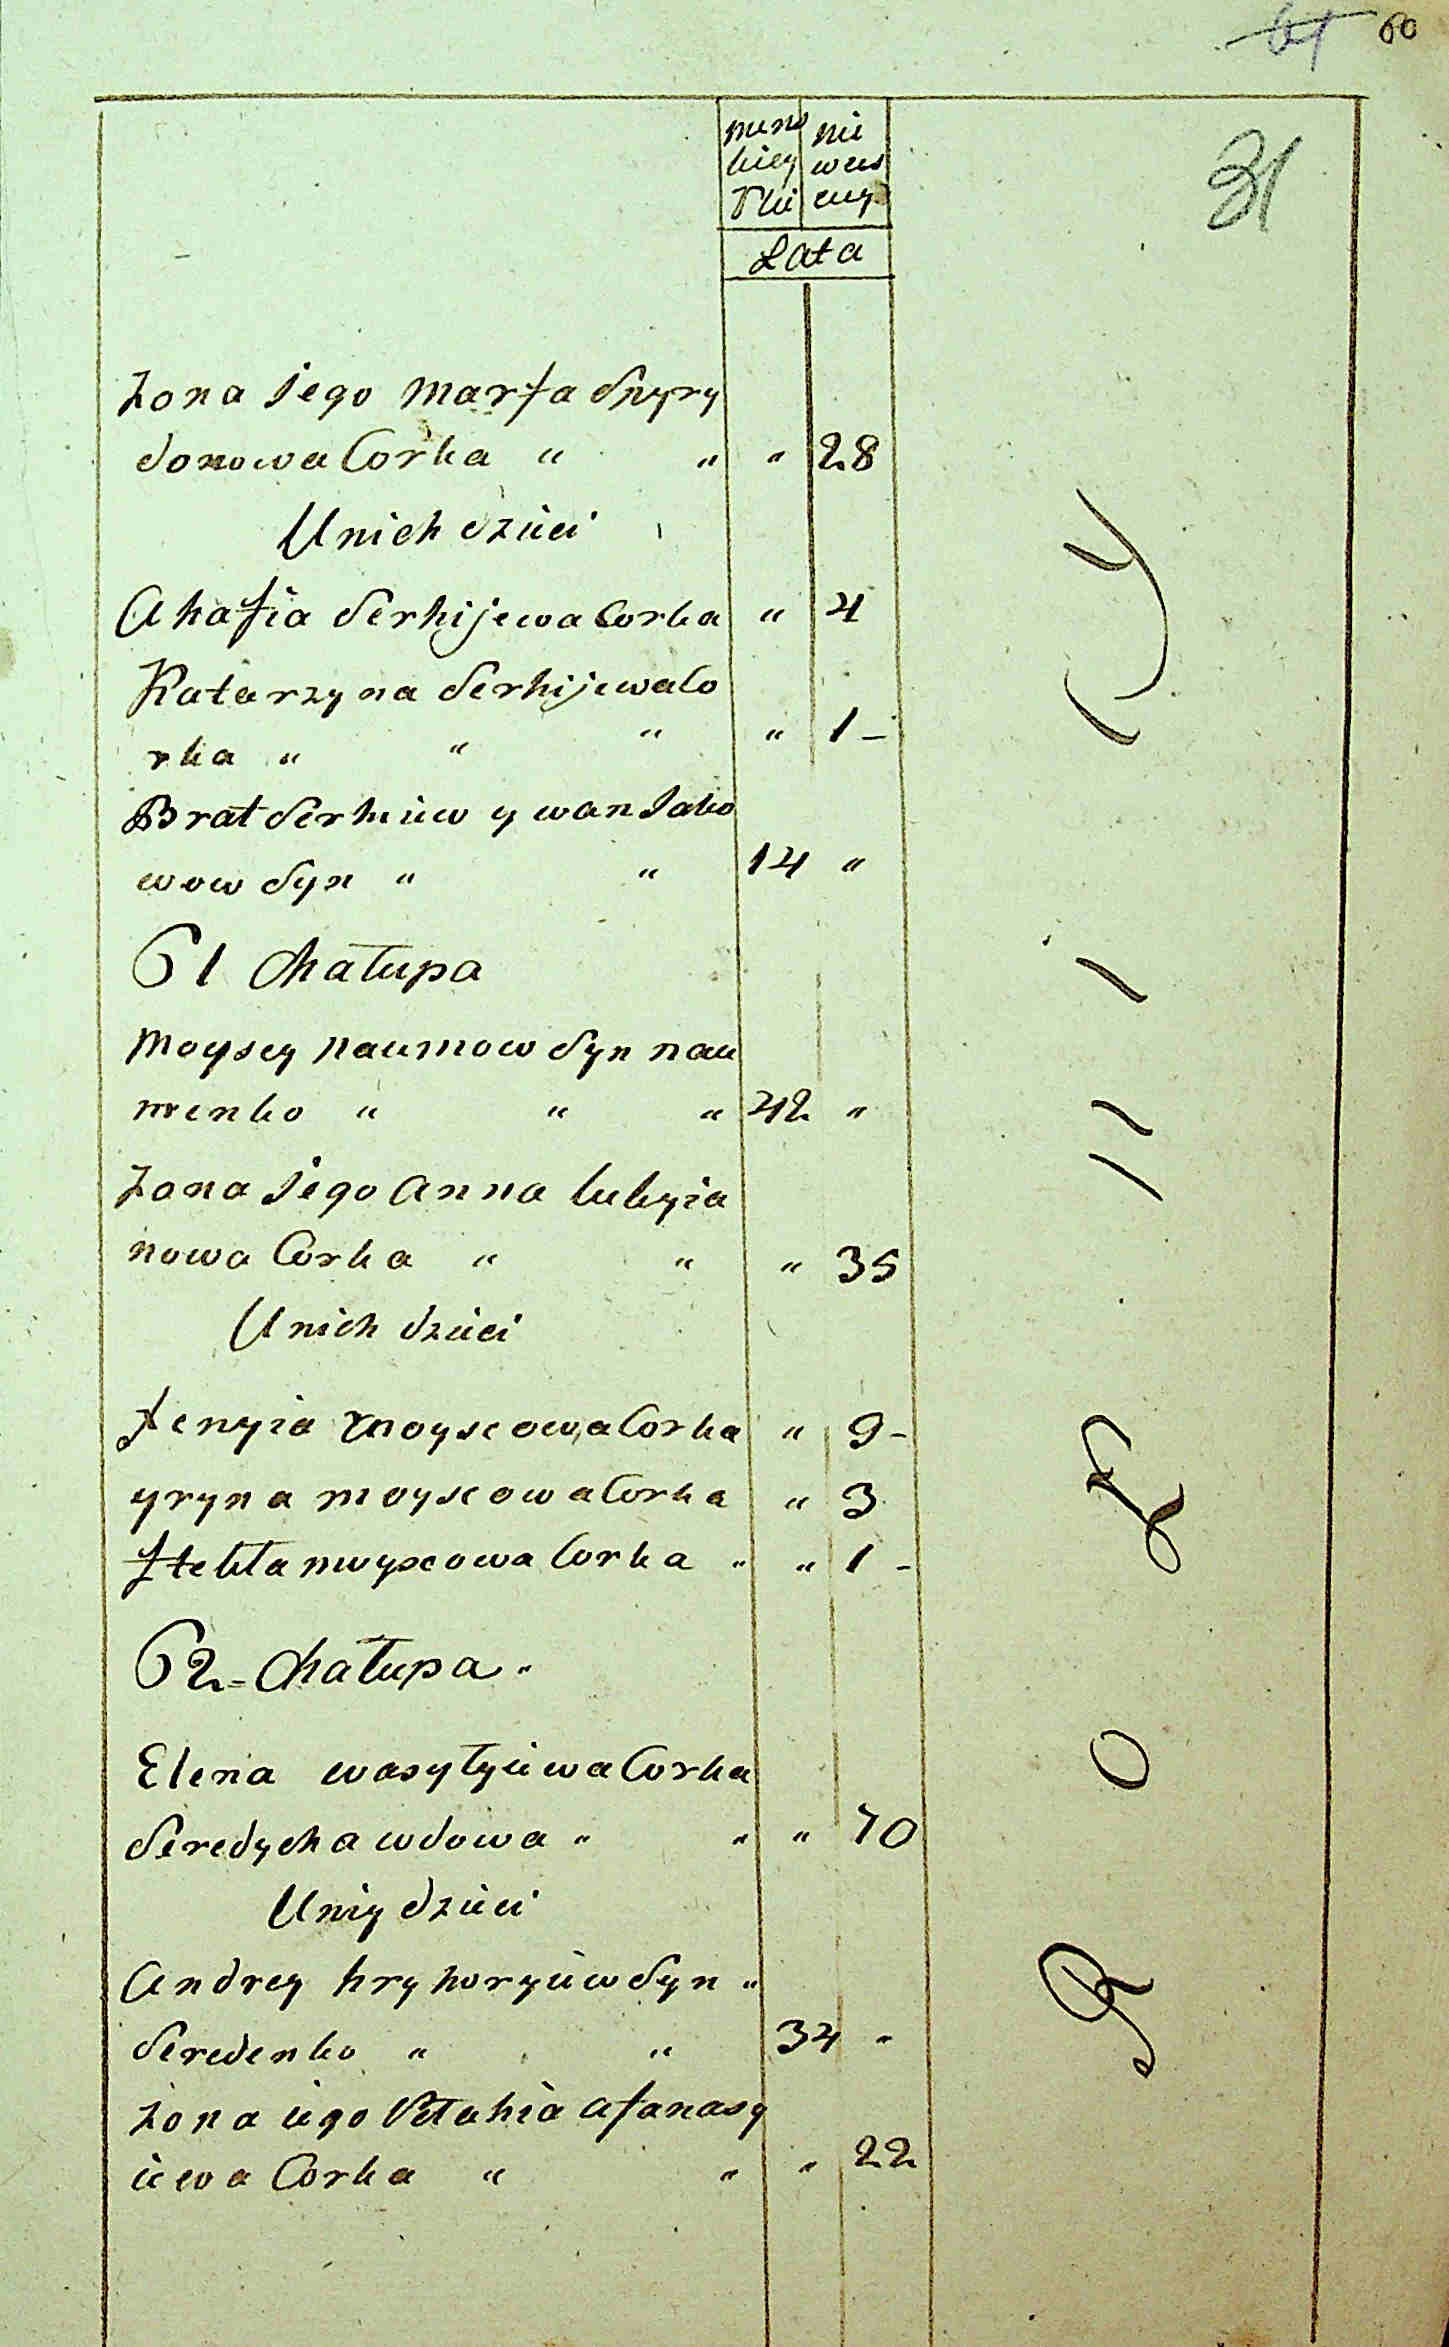 61 60
31
mens nie
kiey wies
Płci ciey
Lata
Żona jego Marfa Spyry
donowa Corka " " " 28
U nich dzieci
Ahafia Serhijewa Corka " 4
Katarzyna Serhijewa Co
rka " " " " 1 -
Brat Serhiiew ywan Jako
wow Syn " " 14 "
61 Chałupa
Moysey Naumow Syn Nau
menko " " " 42 "
Żona jego Anna Lukyia
nowa Corka " " " 35
U nich dzieci
Fenyia Moyseowa Corka " 9 -
yryna Moyseowa Corka " 3
Ftekla Moyseowa Corka " " 1 -
62 = Chałupa "
Elena Wasyłyiewa Corka
Seredycha wdowa " " " 70
U niy dzieci
Andrey hryhoryiew Syn "
Seredenko " " 34 "
Żona iego Petahia Afanasy
iewa Corka " " " 22